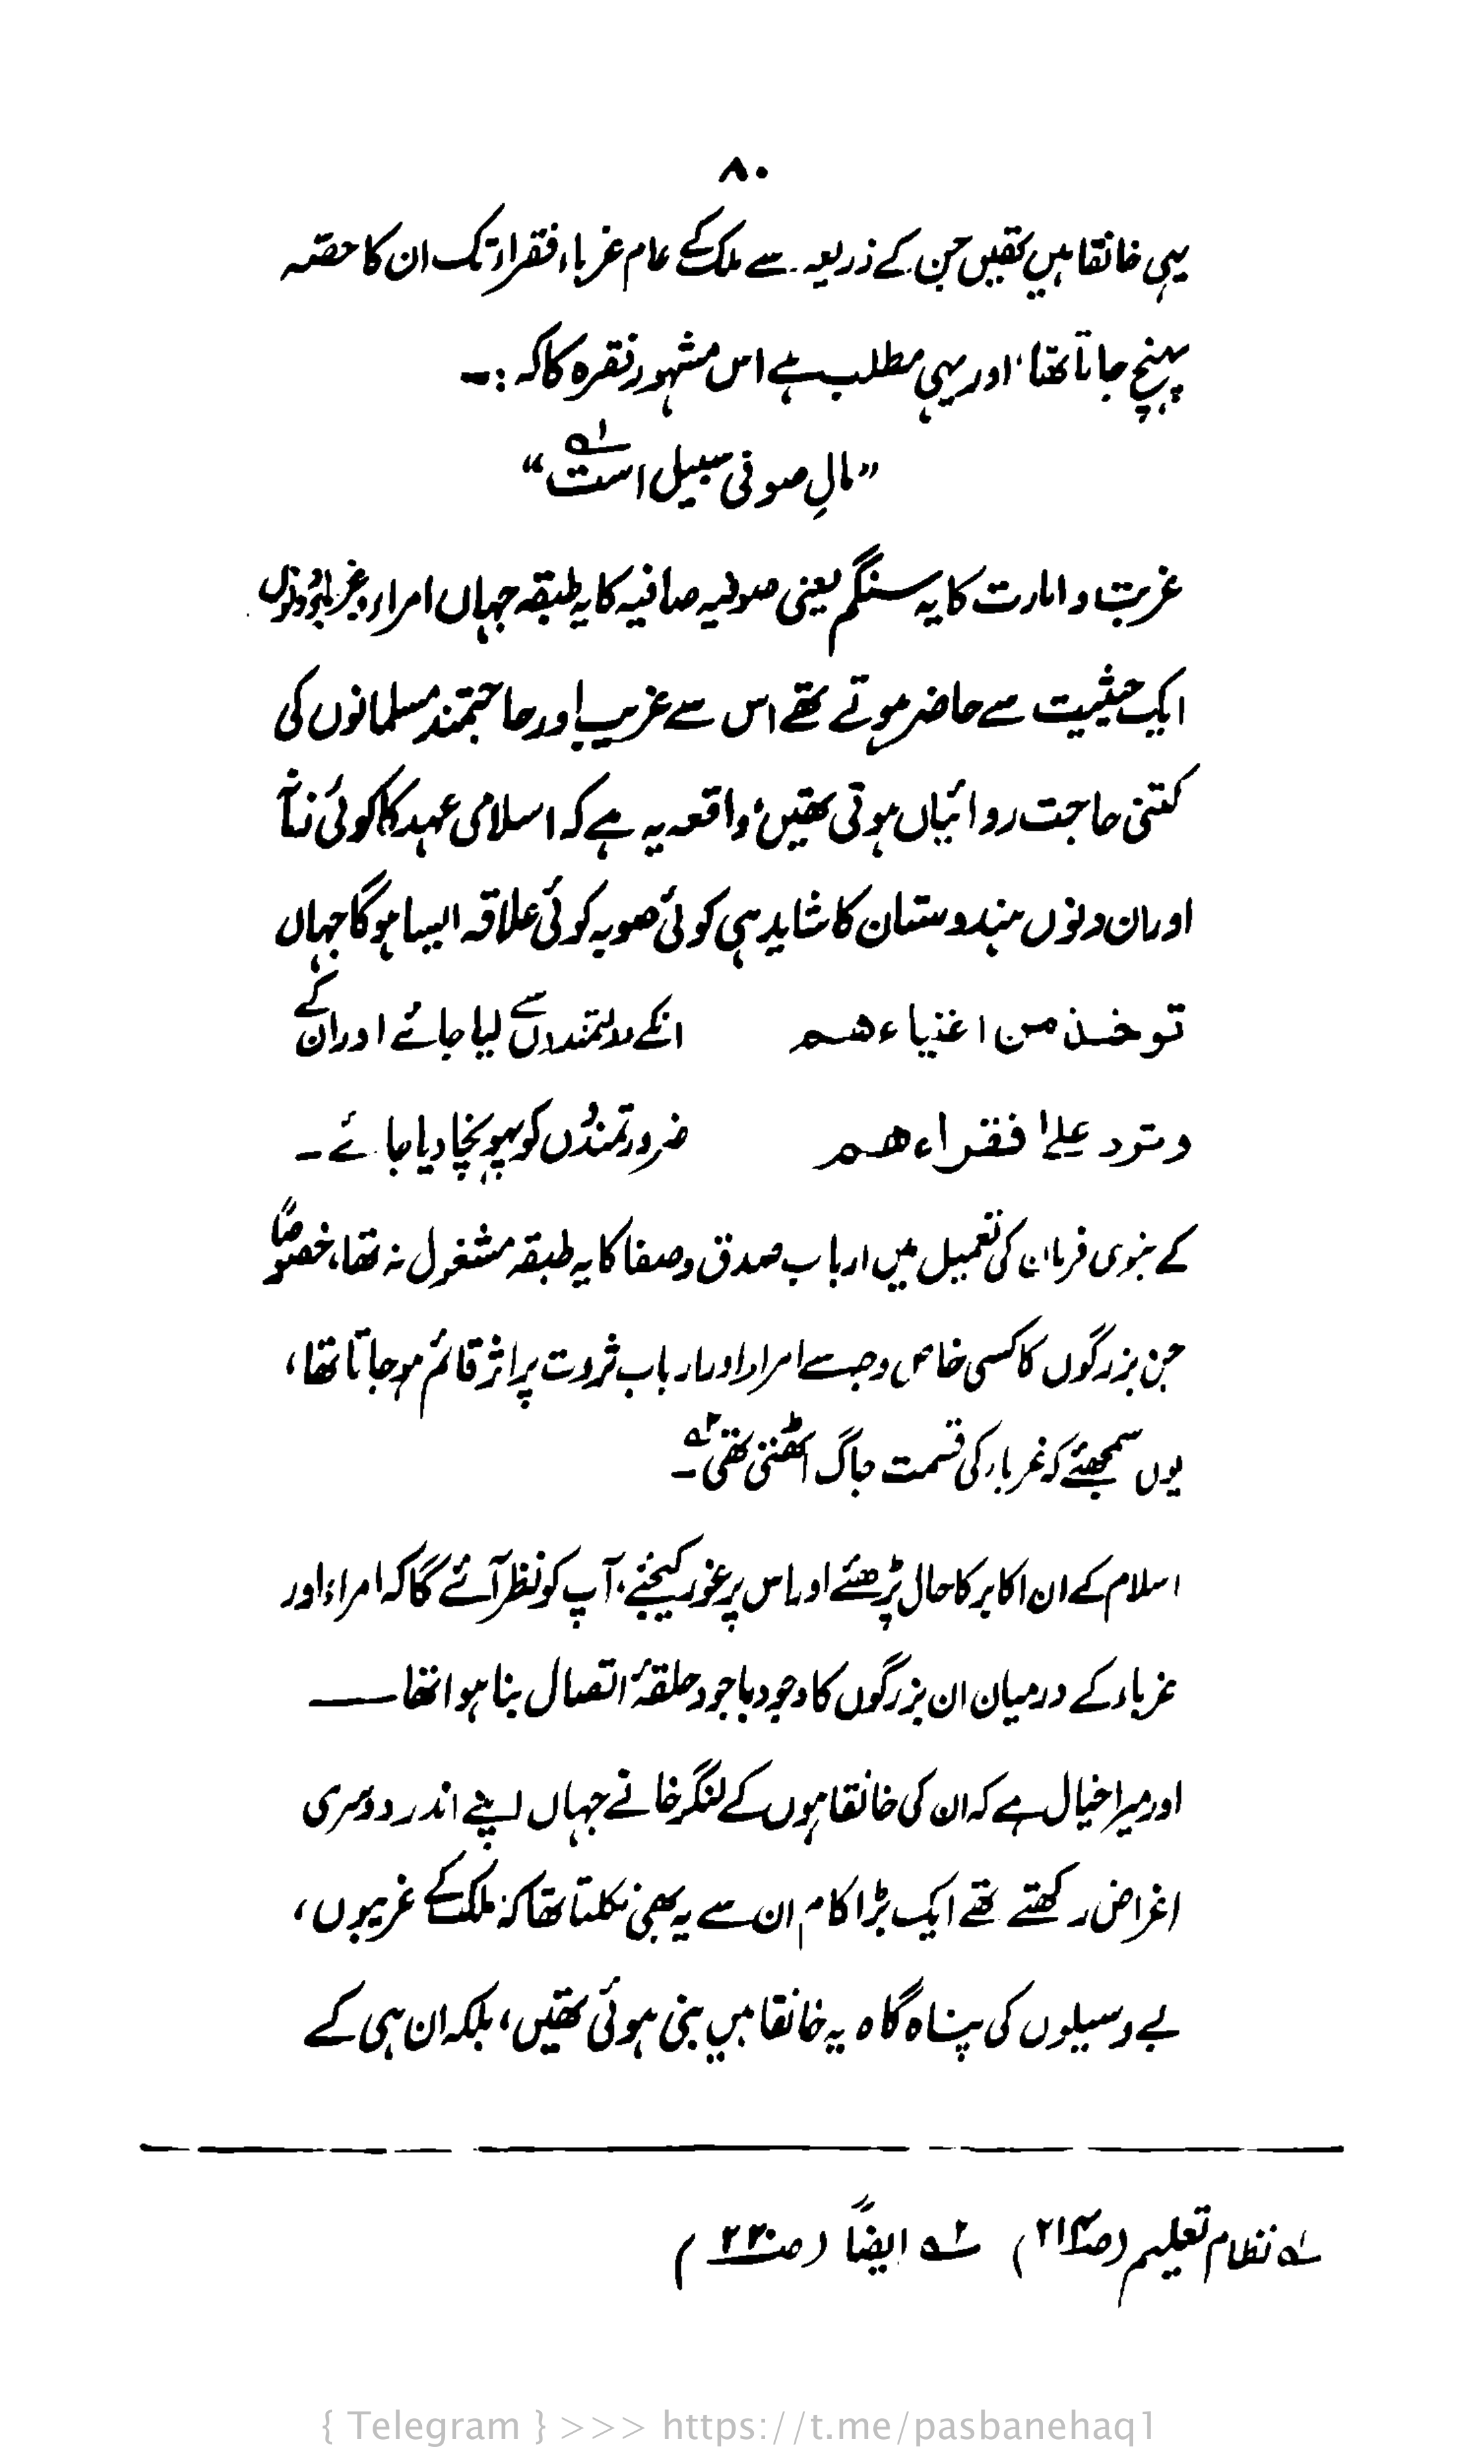 ۸۰
یہی خانقاہیں تھیں جن کے ذریعہ سے ملک کے عام غرباء فقراء تک ان کا حصّہ
پہنچ جاتا تھا، اور یہی مطلب ہے اس مشہور فقرہ کا کہ :۔
”مالِ صوفی سبیل است ۱؎“
غربت و امارت کا یہ سنگم یعنی صوفیہ صافیہ کا یہ طبقہ جہاں امراء و غرباء دونوں
ایک حیثیت سے حاضر ہوتے تھے اس سے غریب اور حاجتمند مسلمانوں کی
کتنی حاجت روائیاں ہوتی تھیں، واقعہ یہ ہے کہ اسلامی عہد کا کوئی
اور ان دنوں ہندوستان کا شاید ہی کوئی صوبہ کوئی علاقہ ایسا ہوگا جہاں
توخذ من اغنیاءھم انکے دولتمندوں سے لیا جائے اور ان کے
وترد علےٰ فقراءھم ضرورتمندوں کو پہونچا دیا جائے۔
کے نبوی فرمان کی تعمیل میں ارباب صدق و صفا کا یہ طبقہ مشغول نہ تھا، خصوصاً
جن بزرگوں کا کسی خاص وجہ سے امراء اور ارباب ثروت پر اثر قائم ہو جاتا تھا،
یوں سمجھئے کہ غرباء کی قسمت جاگ اٹھتی تھی ۲؎۔
اسلام کے ان اکابر کا حال پڑھئے اور اس پر غور کیجئے، آپ کو نظر آئے گا کہ امراء اور
غرباء کے درمیان ان بزرگوں کا وجود باجود حلقۂ اتصال بنا ہوا تھا ——
اور میرا خیال ہے کہ ان کی خانقاہوں کے لنگر خانے جہاں اپنے اندر دوسری
اغراض رکھتے تھے ایک بڑا کام ان سے یہ بھی نکلتا تھا کہ ملک کے غریبوں،
بے وسیلوں کی پناہ گاہ یہ خانقاہیں بنی ہوئی تھیں، بلکہ ان ہی کے
۱؎ نظام تعلیم (ص۲۱۴) ۲؎ ایضاً (ص۲۲۰)
{ Telegram } >>> https://t.me/pasbanehaq1